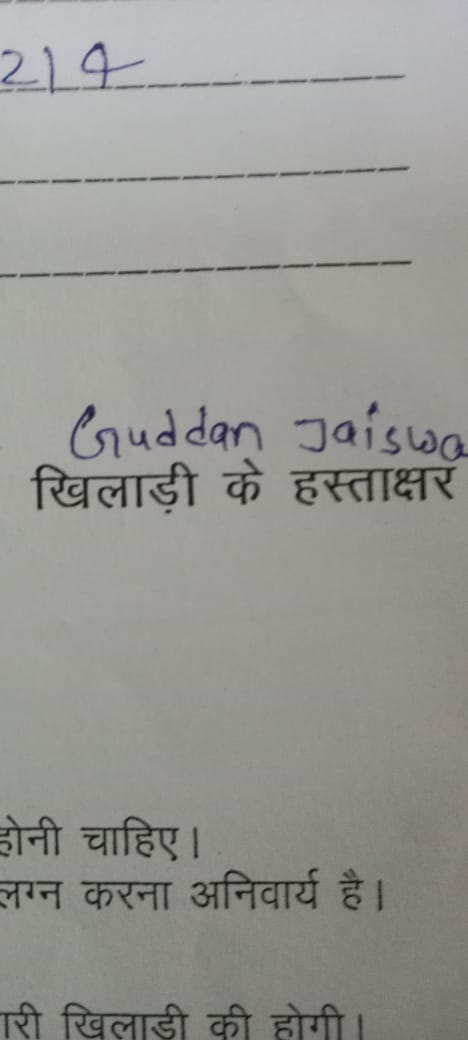 214
Guddan Jaiswa
खिलाड़ी के हस्ताक्षर
होनी चाहिए।
लग्न करना अनिवार्य है।
ारी खिलाड़ी की होगी।